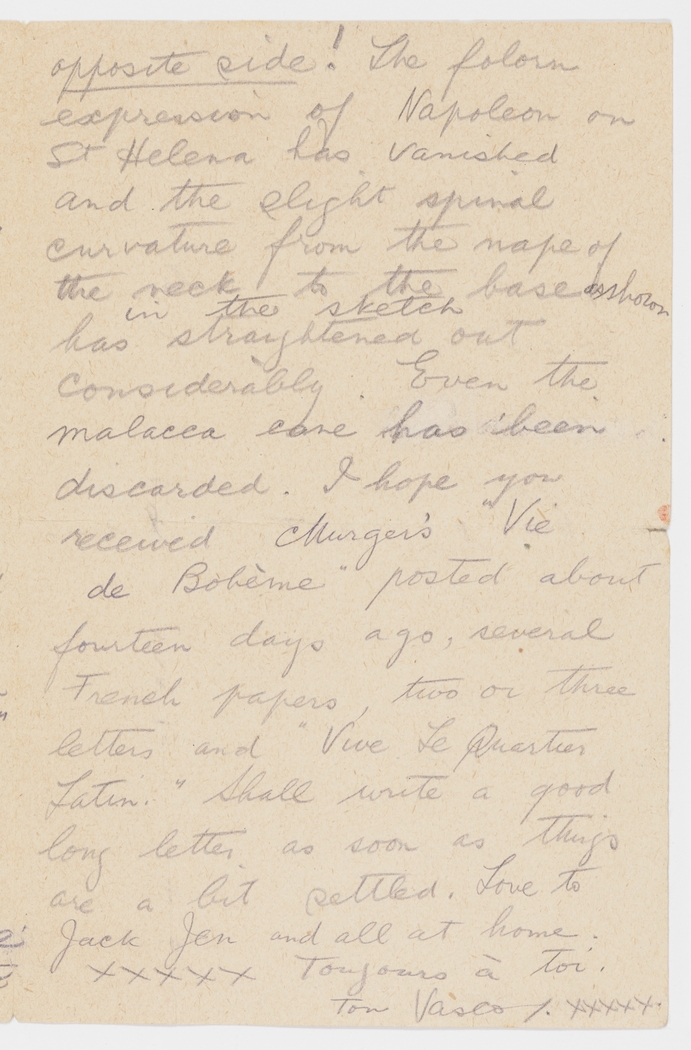 opposite side! The folorn
expression of Napoleon on
St Helena has vanished
and the slight spinal
curvature from the nape of
the neck to the base as shown
in the sketch
has straightened out
considerably. Even the
malacca cane has been
discarded. I hope you
received Murger's "Vie
de Bohème" posted about
fourteen days ago, several
French papers, two or three
letters and "Vive Le Quartier
Latin." Shall write a good
long letter as soon as things
are a bit settled. Love to
Jack Jen and all at home.
xxxxx Toujours à toi.
Ton Vasco /. xxxxx.